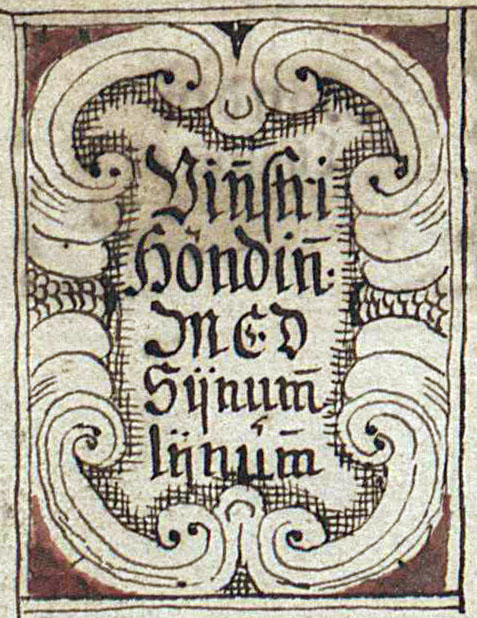 Vin̄ſtri
Höndin̄.
MED
Sijnum̄
lijnum̄